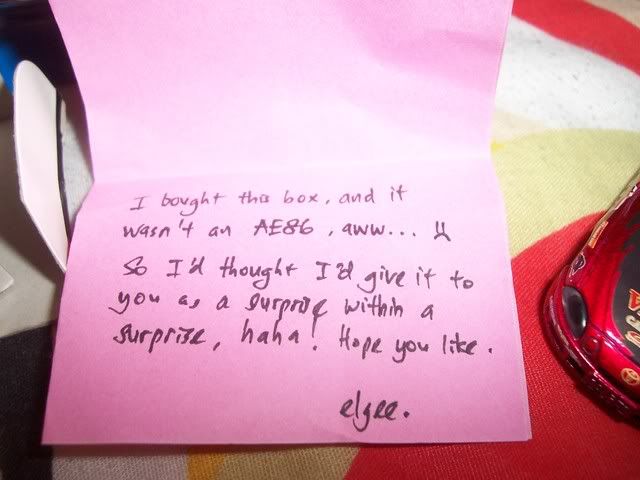 I bought this box, and it
wasn't an AE86, aww... :(
So I'd thought I'd give it to
you as a surprise within a
surprise, haha! Hope you like.
elgee.